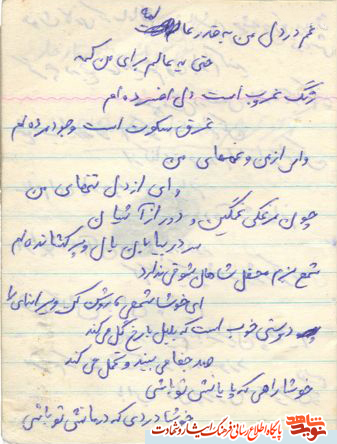 غم در دل من به قدر عالم
حتی یه عالم برای من کمه
رنگ غروب است دل افسرده ام
غرق سکوت است وجود مرده ام
وای از من و غمهای من
وای از دل تنهای من
چون مرغکی غمگین و دور از آشیان
سر در بیابان بال و پر کشانده ام
شمع بزم محفل شاهان شو قی ندارد
ای خوشا شمعی که روشن کند ویرانه‌ای را
دوستی خوب است که بلبل با رخ گل می کند
صد جفا می بیند و تحمل می کند
خوشا راهی که پایانش تو باشی
خوشا دردی که درمانش تو باشی
نوید شاهد
پایگاه اطلاع رسانی فرهنگ ایثار و شهادت